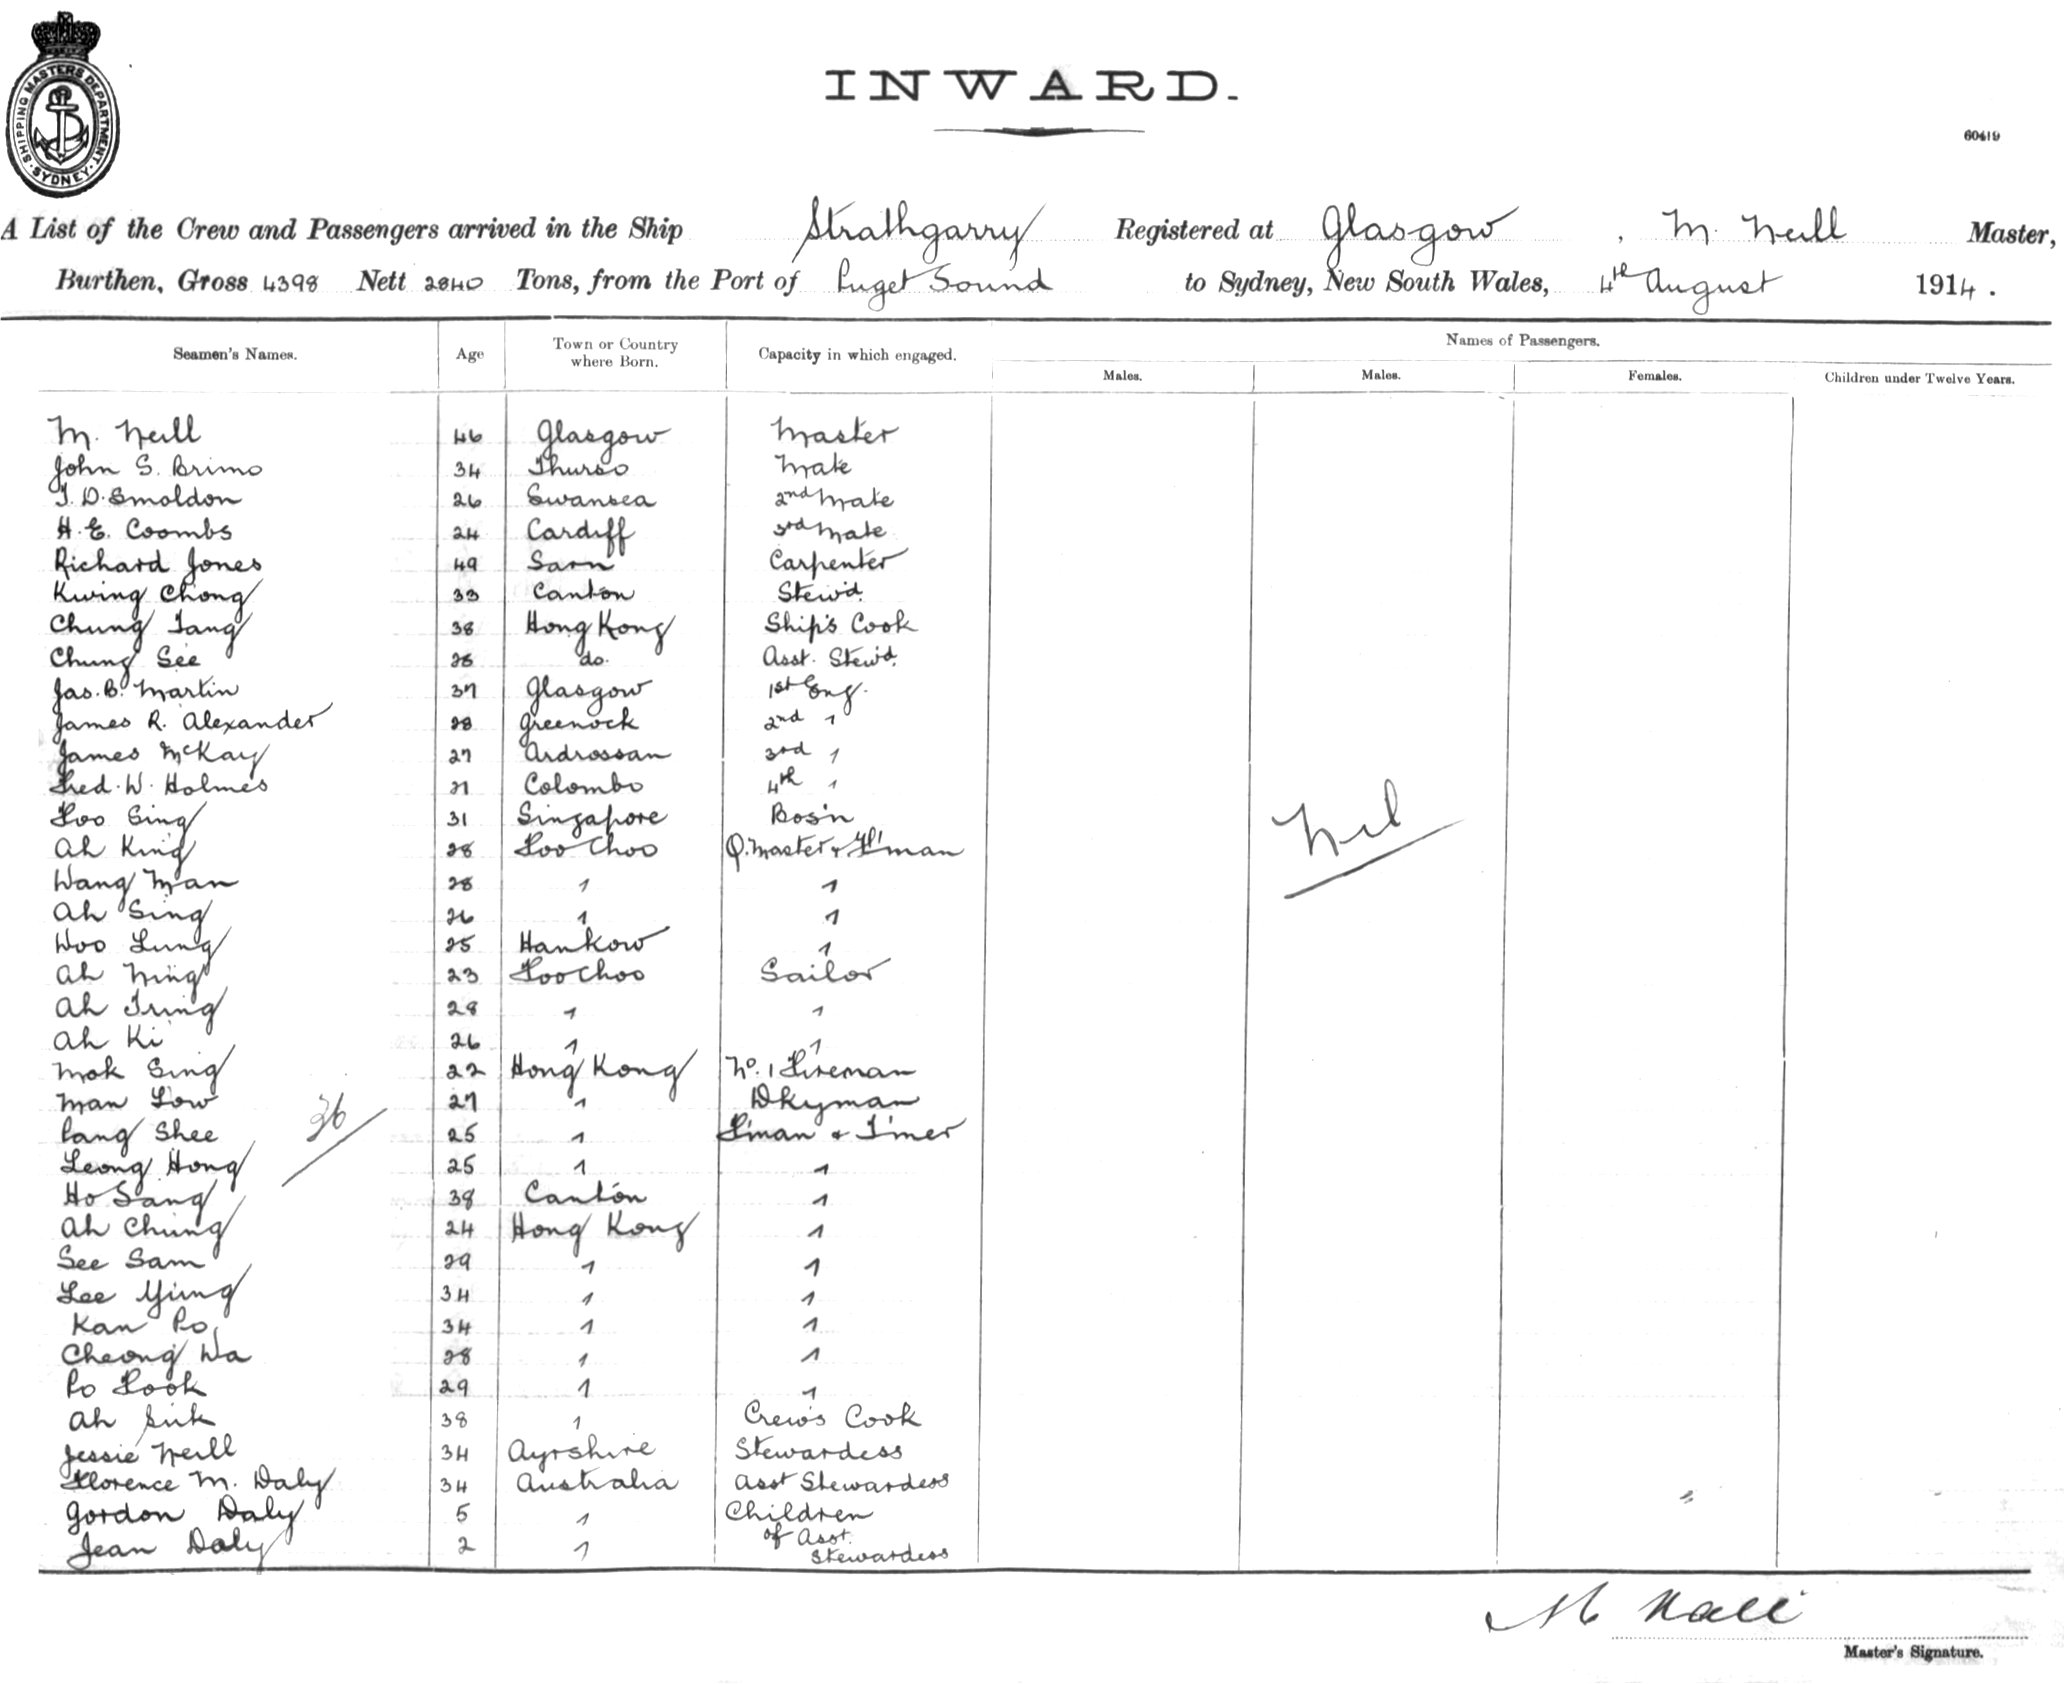 SHIPPING MASTERS DEPARTMENT. SYDNEY.
INWARD.
60419
A List of the Crew and Passengers arrived in the Ship Strathgarry Registered at Glasgow, M. Neill Master,
Burthen, Gross 4398 Nett 2840 Tons, from the Port of Puget Sound to Sydney, New South Wales, 4th August 1914.
Seamen's Names. Age Town or Country where Born. Capacity in which engaged. Names of Passengers.
Males. Males. Females. Children under Twelve Years.
M. Neill 46 Glasgow Master
John S. Brims 34 Thurso Mate
T. D. Smoldon 26 Swansea 2nd Mate
H. E. Coombs 24 Cardiff 3rd Mate
Richard Jones 49 Sarn Carpenter
Kwing Chong 33 Canton Stew'd.
Chung Tang 38 Hong Kong Ship's Cook
Chung See 28 do. Asst. Stew'd.
Jas. B. Martin 37 Glasgow 1st Eng.
James R. Alexander 28 Greenock 2nd "
James McKay 27 Ardrossan 3rd "
Fred. W. Holmes 21 Colombo 4th "
Foo Sing 31 Singapore Bos'n
Ah King 28 Foo Choo Q. Master & F'man
Wang Man 28 " "
Ah Sing 26 " "
Woo Lung 25 Hankow "
Ah Ning 23 Foo Choo Sailor
Ah Tring 28 " "
Ah Ki 26 " "
Mok Sing 22 Hong Kong No. 1 Fireman
Man Low 27 " Dkyman
Pang Shee 25 " F'man & T'mer
Leong Hong 25 " "
Ho Sang 38 Canton "
Ah Chung 24 Hong Kong "
See Sam 29 " "
Lee Yung 34 " "
Kan Po 34 " "
Cheong Wa 28 " "
Po Fook 29 " "
Ah Suk 38 " Crew's Cook
Jessie Neill 34 Ayrshire Stewardess
Florence M. Daly 34 Australia Asst Stewardess
Gordon Daly 5 " Children
Jean Daly 2 " of Asst. Stewardess
36
Nil
M Neill
Master's Signature.